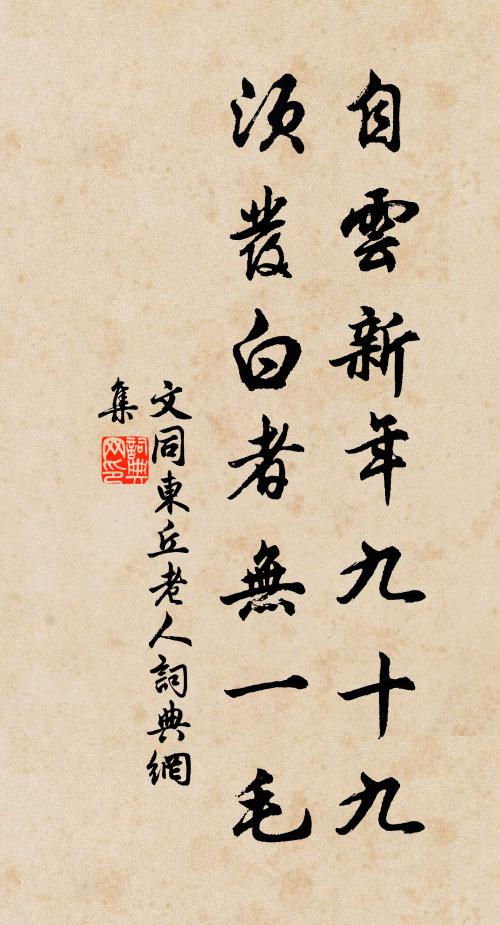 自雲新年九十九
須發白者無一毛
文同東丘老人詞典網
集
詞典
网印